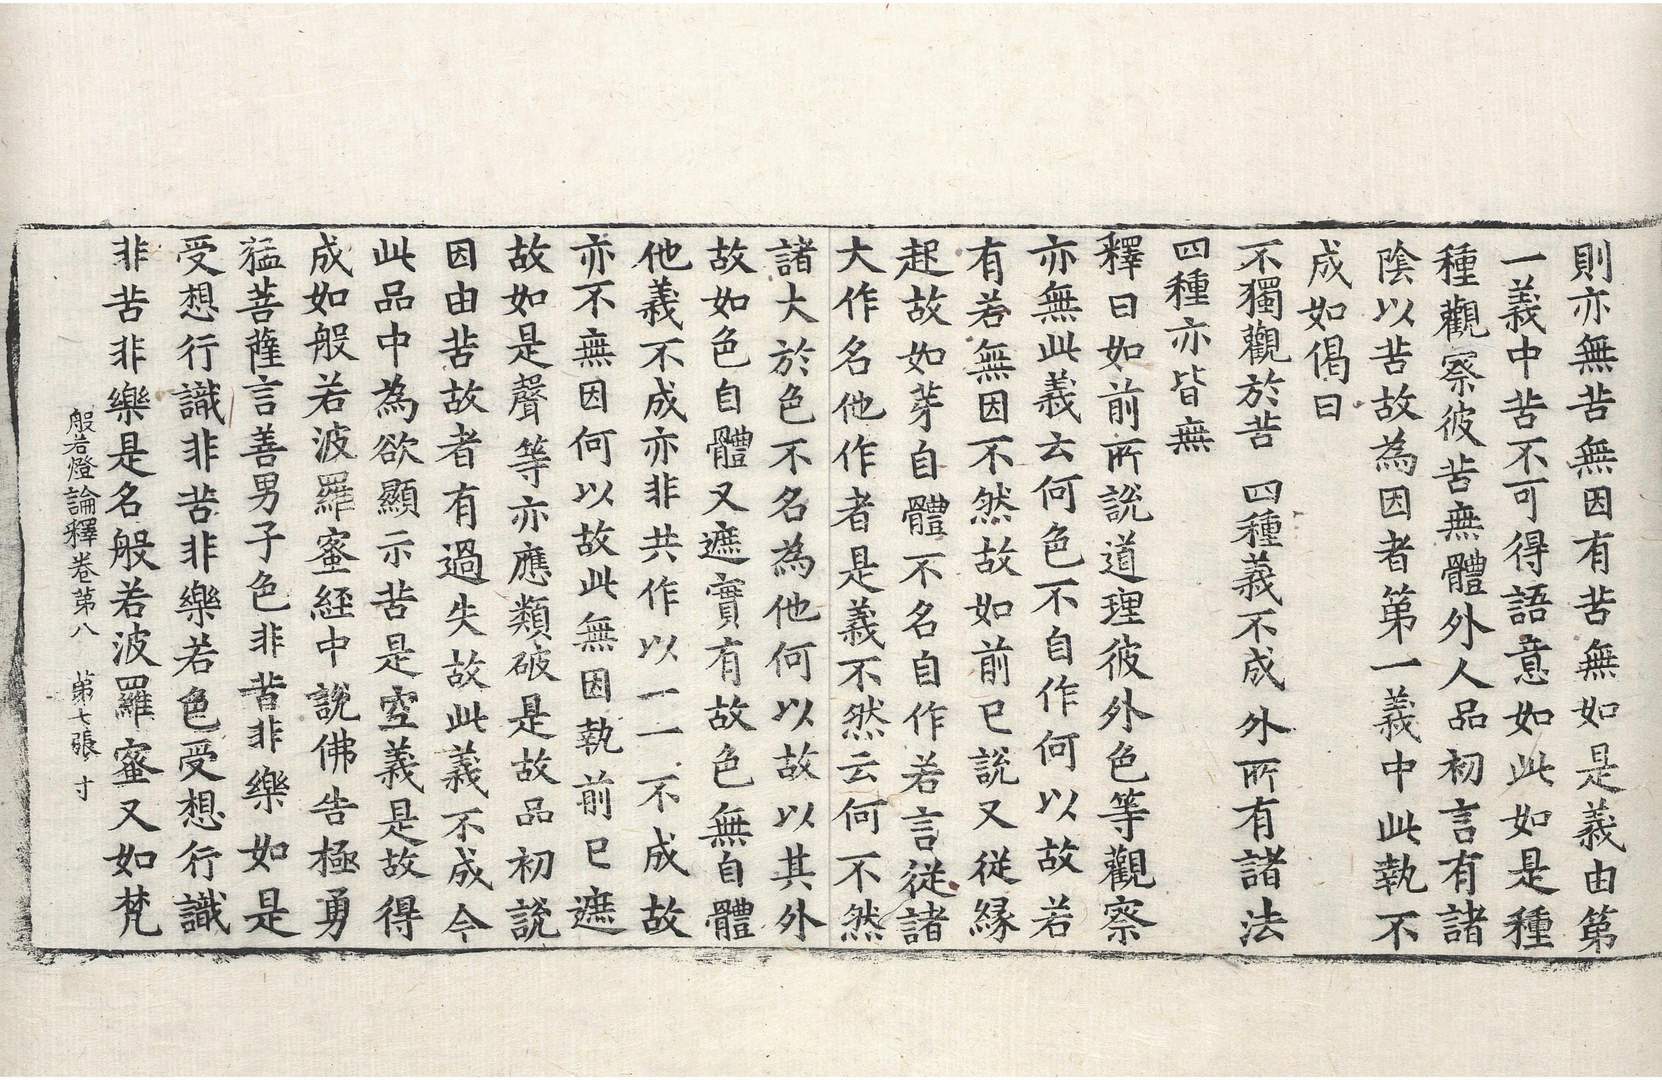 則亦無苦無因有苦無如是義由第
一義中苦不可得語意如此如是種
種觀察彼苦無體外人品初言有諸
陰以苦故為因者第一義中此執不
成如偈曰
不獨觀於苦 四種義不成 外所有諸法
四種亦皆無
釋曰如前所說道理彼外色等觀察
亦無此義云何色不自作何以故若
有若無因不然故如前已說又從緣
起故如芽自體不名自作若言從諸
大作名他作者是義不然云何不然
諸大於色不名為他何以故以其外
故如色自體又遮實有故色無自體
他義不成亦非共作以一一不成故
亦不無因何以故此無因執前已遮
故如是聲等亦應類破是故品初說
因由苦故者有過失故此義不成今
此品中為欲顯示苦是空義是故得
成如般若波羅蜜經中說佛告極勇
猛菩薩言善男子色非苦非樂如是
受想行識非苦非樂若色受想行識
非苦非樂是名般若波羅蜜又如梵
般若燈論釋卷第八 第七張 寸